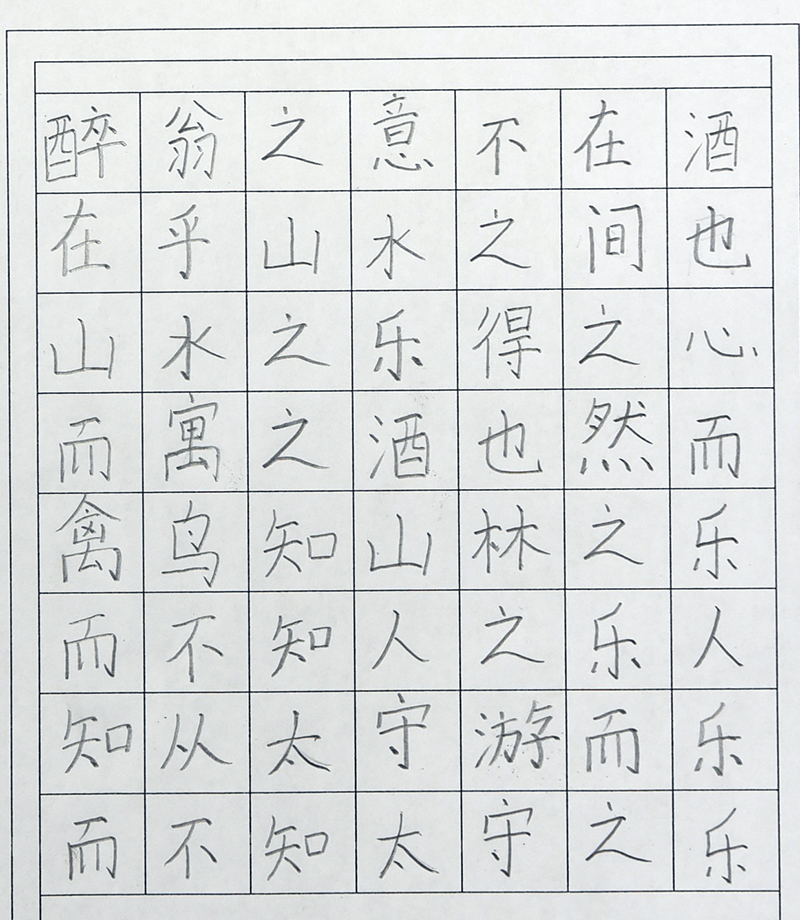 醉翁之意不在酒
在乎山水之间也
山水之乐得之心
而寓之酒也然而
禽鸟知山林之乐
而不知人之乐人
知从太守游而乐
而不知太守之乐